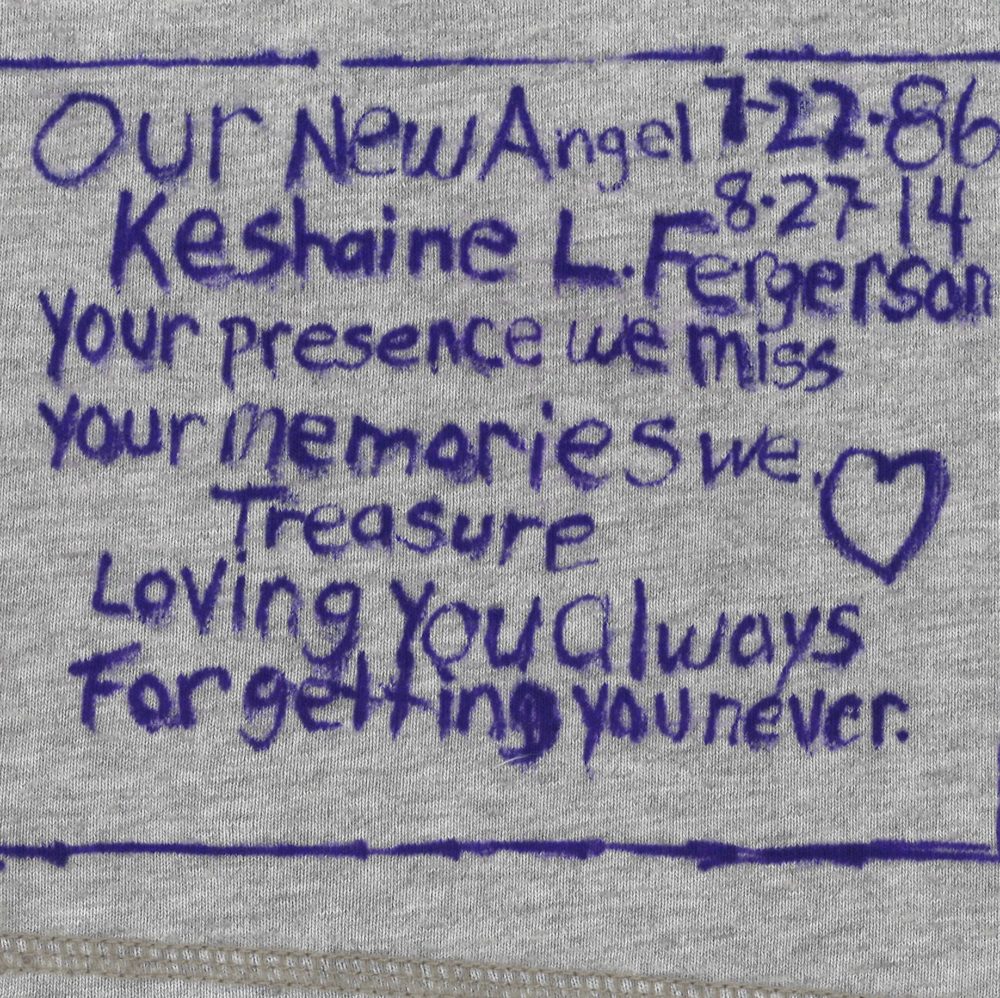 Our New Angel 7-22-86
8-27-14
Keshaine L. Fergerson
Your presence we miss
your memories we.
Treasure
Loving You Always
Forgetting you never.